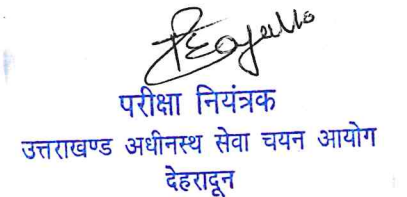 परीक्षा नियंत्रक
उत्तराखण्ड अधीनस्थ सेवा चयन आयोग
देहरादून